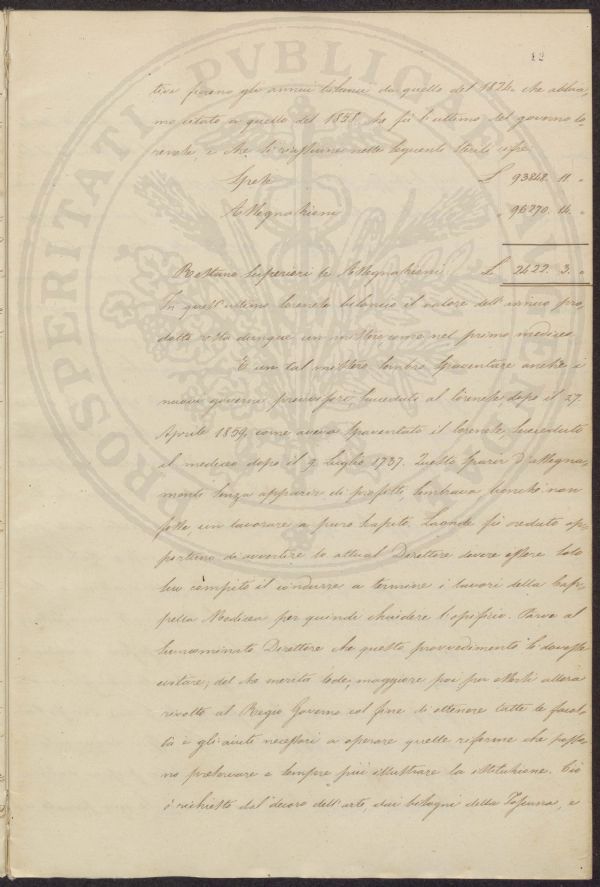 12
tivi furono gli annui bilanci da quello del 1824 che abbia-
mo citato a quello del 1858 che fu l'ultimo del governo lo-
renese, e che si riassume nelle seguenti sterili cifre
Spese £ 93848. 11 "
Assegnazioni " 96270. 14. "
Restano superiori le Assegnazioni £ 2422. 3. "
In quest'ultimo lorenese bilancio il valore dell'annuo pro-
dotto resta dunque un mistero, come nel primo mediceo.
E un tal mistero sembra spaventare anche i
nuovi governi provvisori succeduti al lorenese dopo il 27.
Aprile 1859, come aveva spaventato il lorenese succeduto
al mediceo dopo il 9. Luglio 1737. Questo sparir d'assegna-
menti senza apparir di profitto, sembrava, benché non
fosse, un lavorare a puro scapito. Laonde fu creduto op-
portuno di avvertire lo attual Direttore dovere essere solo
suo cómpito il condurre a termine i lavori della Cap-
pella Medicea per quindi chiudere l'opificio. Parve al
surnominato Direttore che questo provvedimento si dovesse
evitare; del che merita lode, maggiore poi per essersi allora
rivolto al Regio Governo col fine di ottenere tutte le facol-
tà e gli aiuti necessari a operare quelle riforme che posso-
no preservare e sempre più illustrare la istituzione. Ciò
è richiesto dal decoro dell'arte, dai bisogni della Toscana, e
PROSPERITATI PVBLICAE